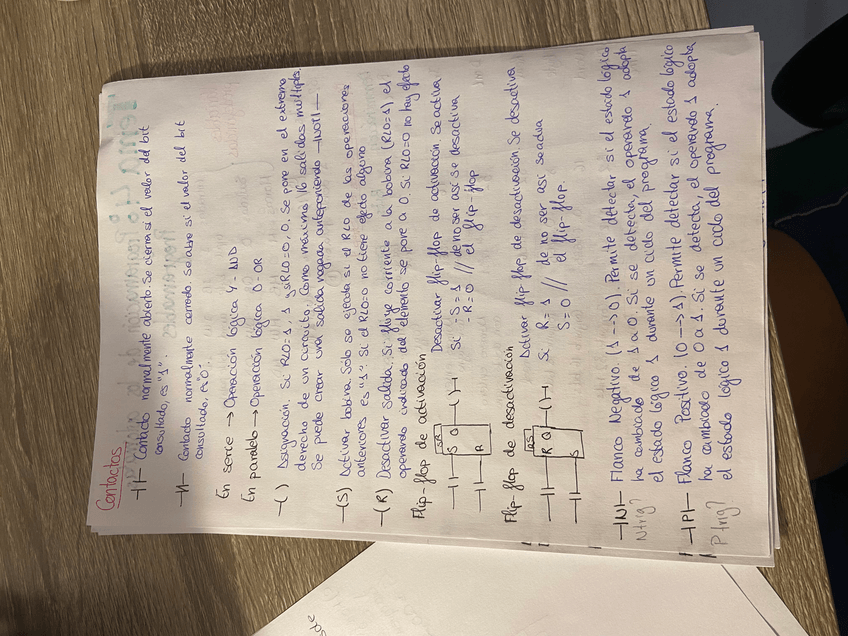 Contactos
⊣⊢ Contacto normalmente abierto. Se cierra si el valor del bit
consultado, es "1".
⊣/⊢ Contacto normalmente cerrado. Se abre si el valor del bit
consultado, es "0".
En serie → Operación lógica Y - AND
En paralelo → Operación lógica O - OR
-( ) Asignación. Si RLO=1, 1 y si RLO=0, 0. Se pone en el extremo
derecho de un circuito. Como máximo 16 salidas múltiples.
Se puede crear una salida negada anteponiendo -|NOT|-
-(S) Activar bobina. Sólo se ejecuta si el RLO de las operaciones
anteriores es "1". Si el RLO=0 no tiene efecto alguno
-(R) Desactivar salida. Si fluye corriente a la bobina (RLO=1) el
operando indicado del elemento se pone a 0. Si RLO=0 no hay efecto
Flip-flop de activación
SR
S Q
R
Desactivar flip-flop de activación Se activa
Si - S = 1 // de no ser así se desactiva
- R = 0 // el flip-flop
Flip-flop de desactivación
RS
R Q
S
Activar flip flop de desactivación Se desactiva
Si R = 1 // de no ser así se activa
S = 0 // el flip-flop.
-|N|- Flanco Negativo. (1 --> 0). Permite detectar si el estado lógico
ha cambiado de 1 a 0. Si se detecta, el operando 1 adopta
Ntrig? el estado lógico 1 durante un ciclo del programa.
-|P|- Flanco Positivo. (0 --> 1). Permite detectar si el estado lógico
ha cambiado de 0 a 1. Si se detecta, el operando 1 adopta
P trig? el estado lógico 1 durante un ciclo del programa.